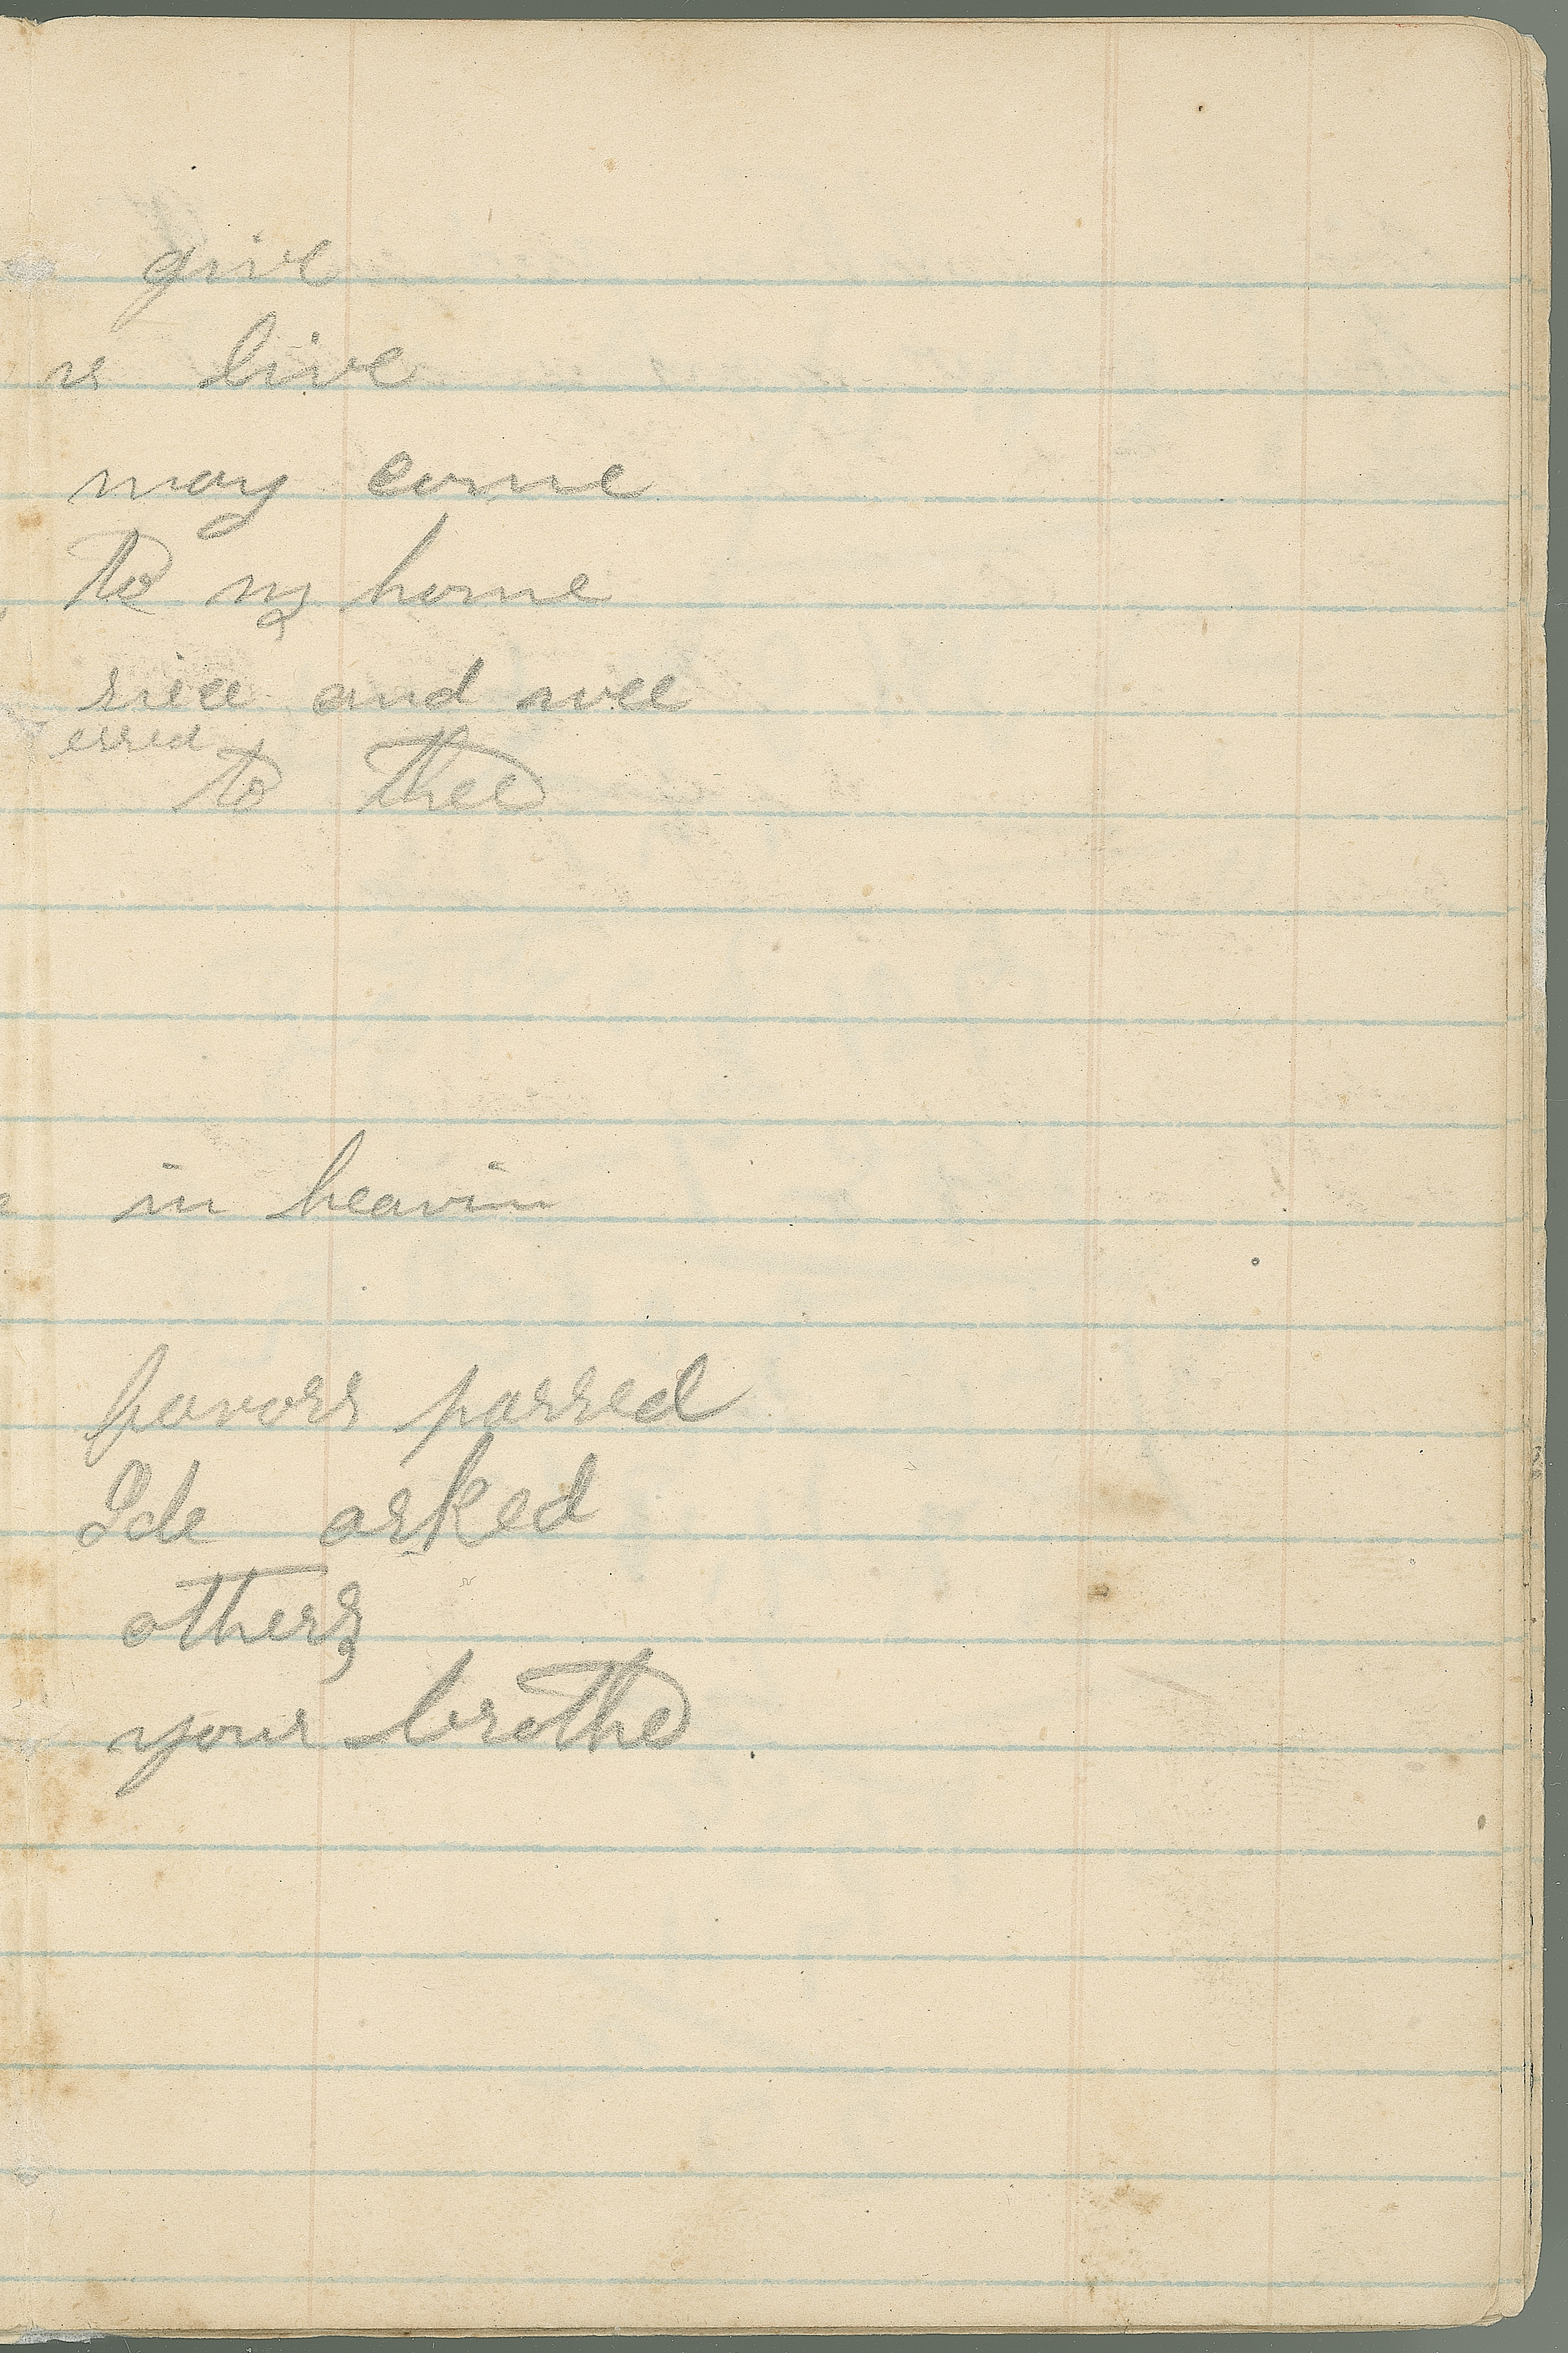 give
rs live
may come
to my home
rice and wee
erred
to thee
in heavin
favors passed
Ide asked
others
your brothe